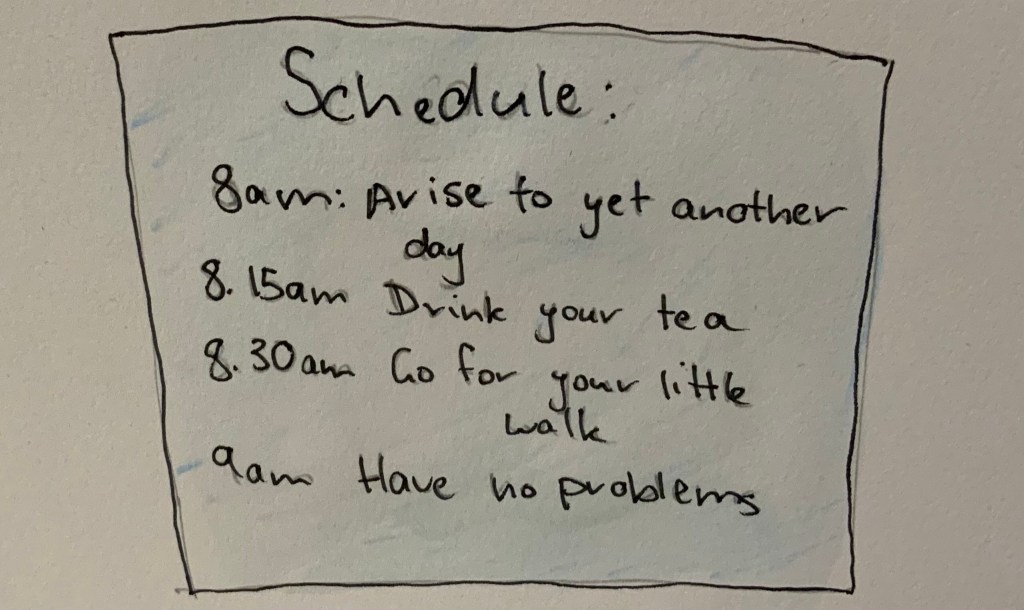 Schedule:
8am: Arise to yet another
day
8.15am Drink your tea
8.30am Go for your little
walk
9am Have no problems